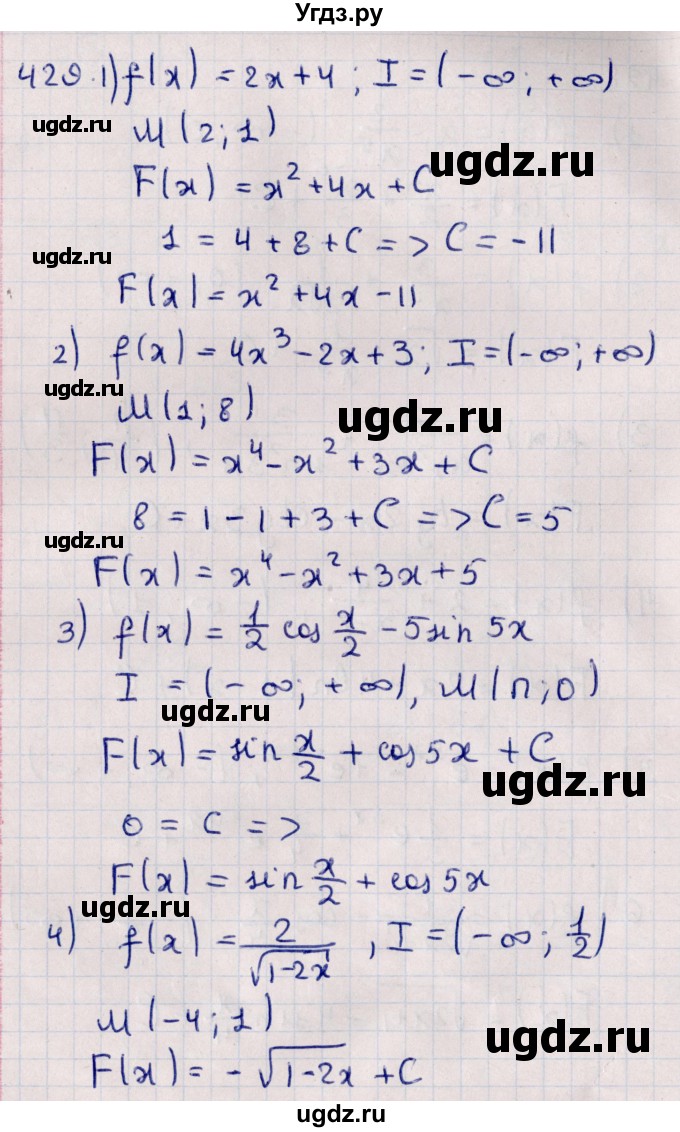 Угдз.ру
429. 1) f(x) = 2x+4 ; I = (-∞ ; +∞)
ugdz.ru
M(2;1)
ugdz.ru
F(x) = x² + 4x + C
1 = 4 + 8 + C => C = -11
ugdz.ru
F(x) = x² + 4x - 11
2) f(x) = 4x³ - 2x + 3 ; I = (-∞ ; +∞)
ugdz.ru
M(1;8)
ugdz.ru
F(x) = x⁴ - x² + 3x + C
8 = 1 - 1 + 3 + C => C = 5
ugdz.ru
F(x) = x⁴ - x² + 3x + 5
3) f(x) = 1/2 cos x/2 - 5 sin 5x
I = (-∞ ; +∞), M(π ; 0)
ugdz.ru
F(x) = sin x/2 + cos 5x + C
ugdz.ru
0 = C =>
F(x) = sin x/2 + cos 5x
ugdz.ru
4) f(x) = 2/√(1-2x) , I = (-∞ ; 1/2)
M(-4 ; 1)
ugdz.ru
F(x) = -√(1-2x) + C
ugdz.ru